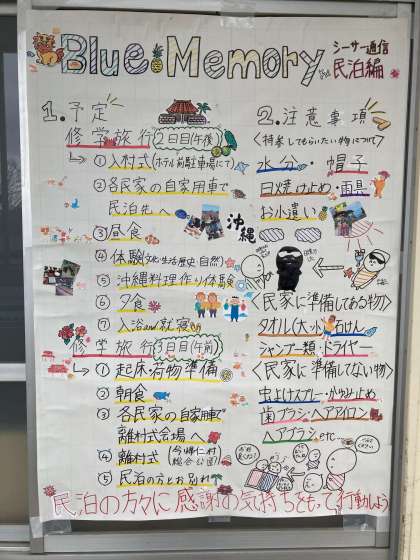 Blue Memory
シーサー通信
民泊編
1. 予定
修学旅行(2日目(午後))
① 入村式(ホテル前駐車場にて)
② 各民家の自家用車で
民泊先へ
③ 昼食
④ 体験(文化・生活・歴史・自然)
⑤ 沖縄料理作り体験
⑥ 夕食
⑦ 入浴and就寝
修学旅行(3日目(午前))
① 起床・荷物準備
② 朝食
③ 各民家の自家用車で
離村式会場へ
④ 離村式(今帰仁村総合公園)
⑤ 民泊の方とお別れ
2. 注意事項
<持参してもらいたい物について>
水分・帽子
日焼け止め・雨具
お小遣い
沖縄
<民家に準備してある物>
タオル(大小)石けん
シャンプー類・ドライヤー
<民家に準備してない物>
虫よけスプレー・かゆみ止め
歯ブラシ・ヘアアイロン
ヘアブラシ etc
民泊の方々に感謝の気持ちをもって行動しよう